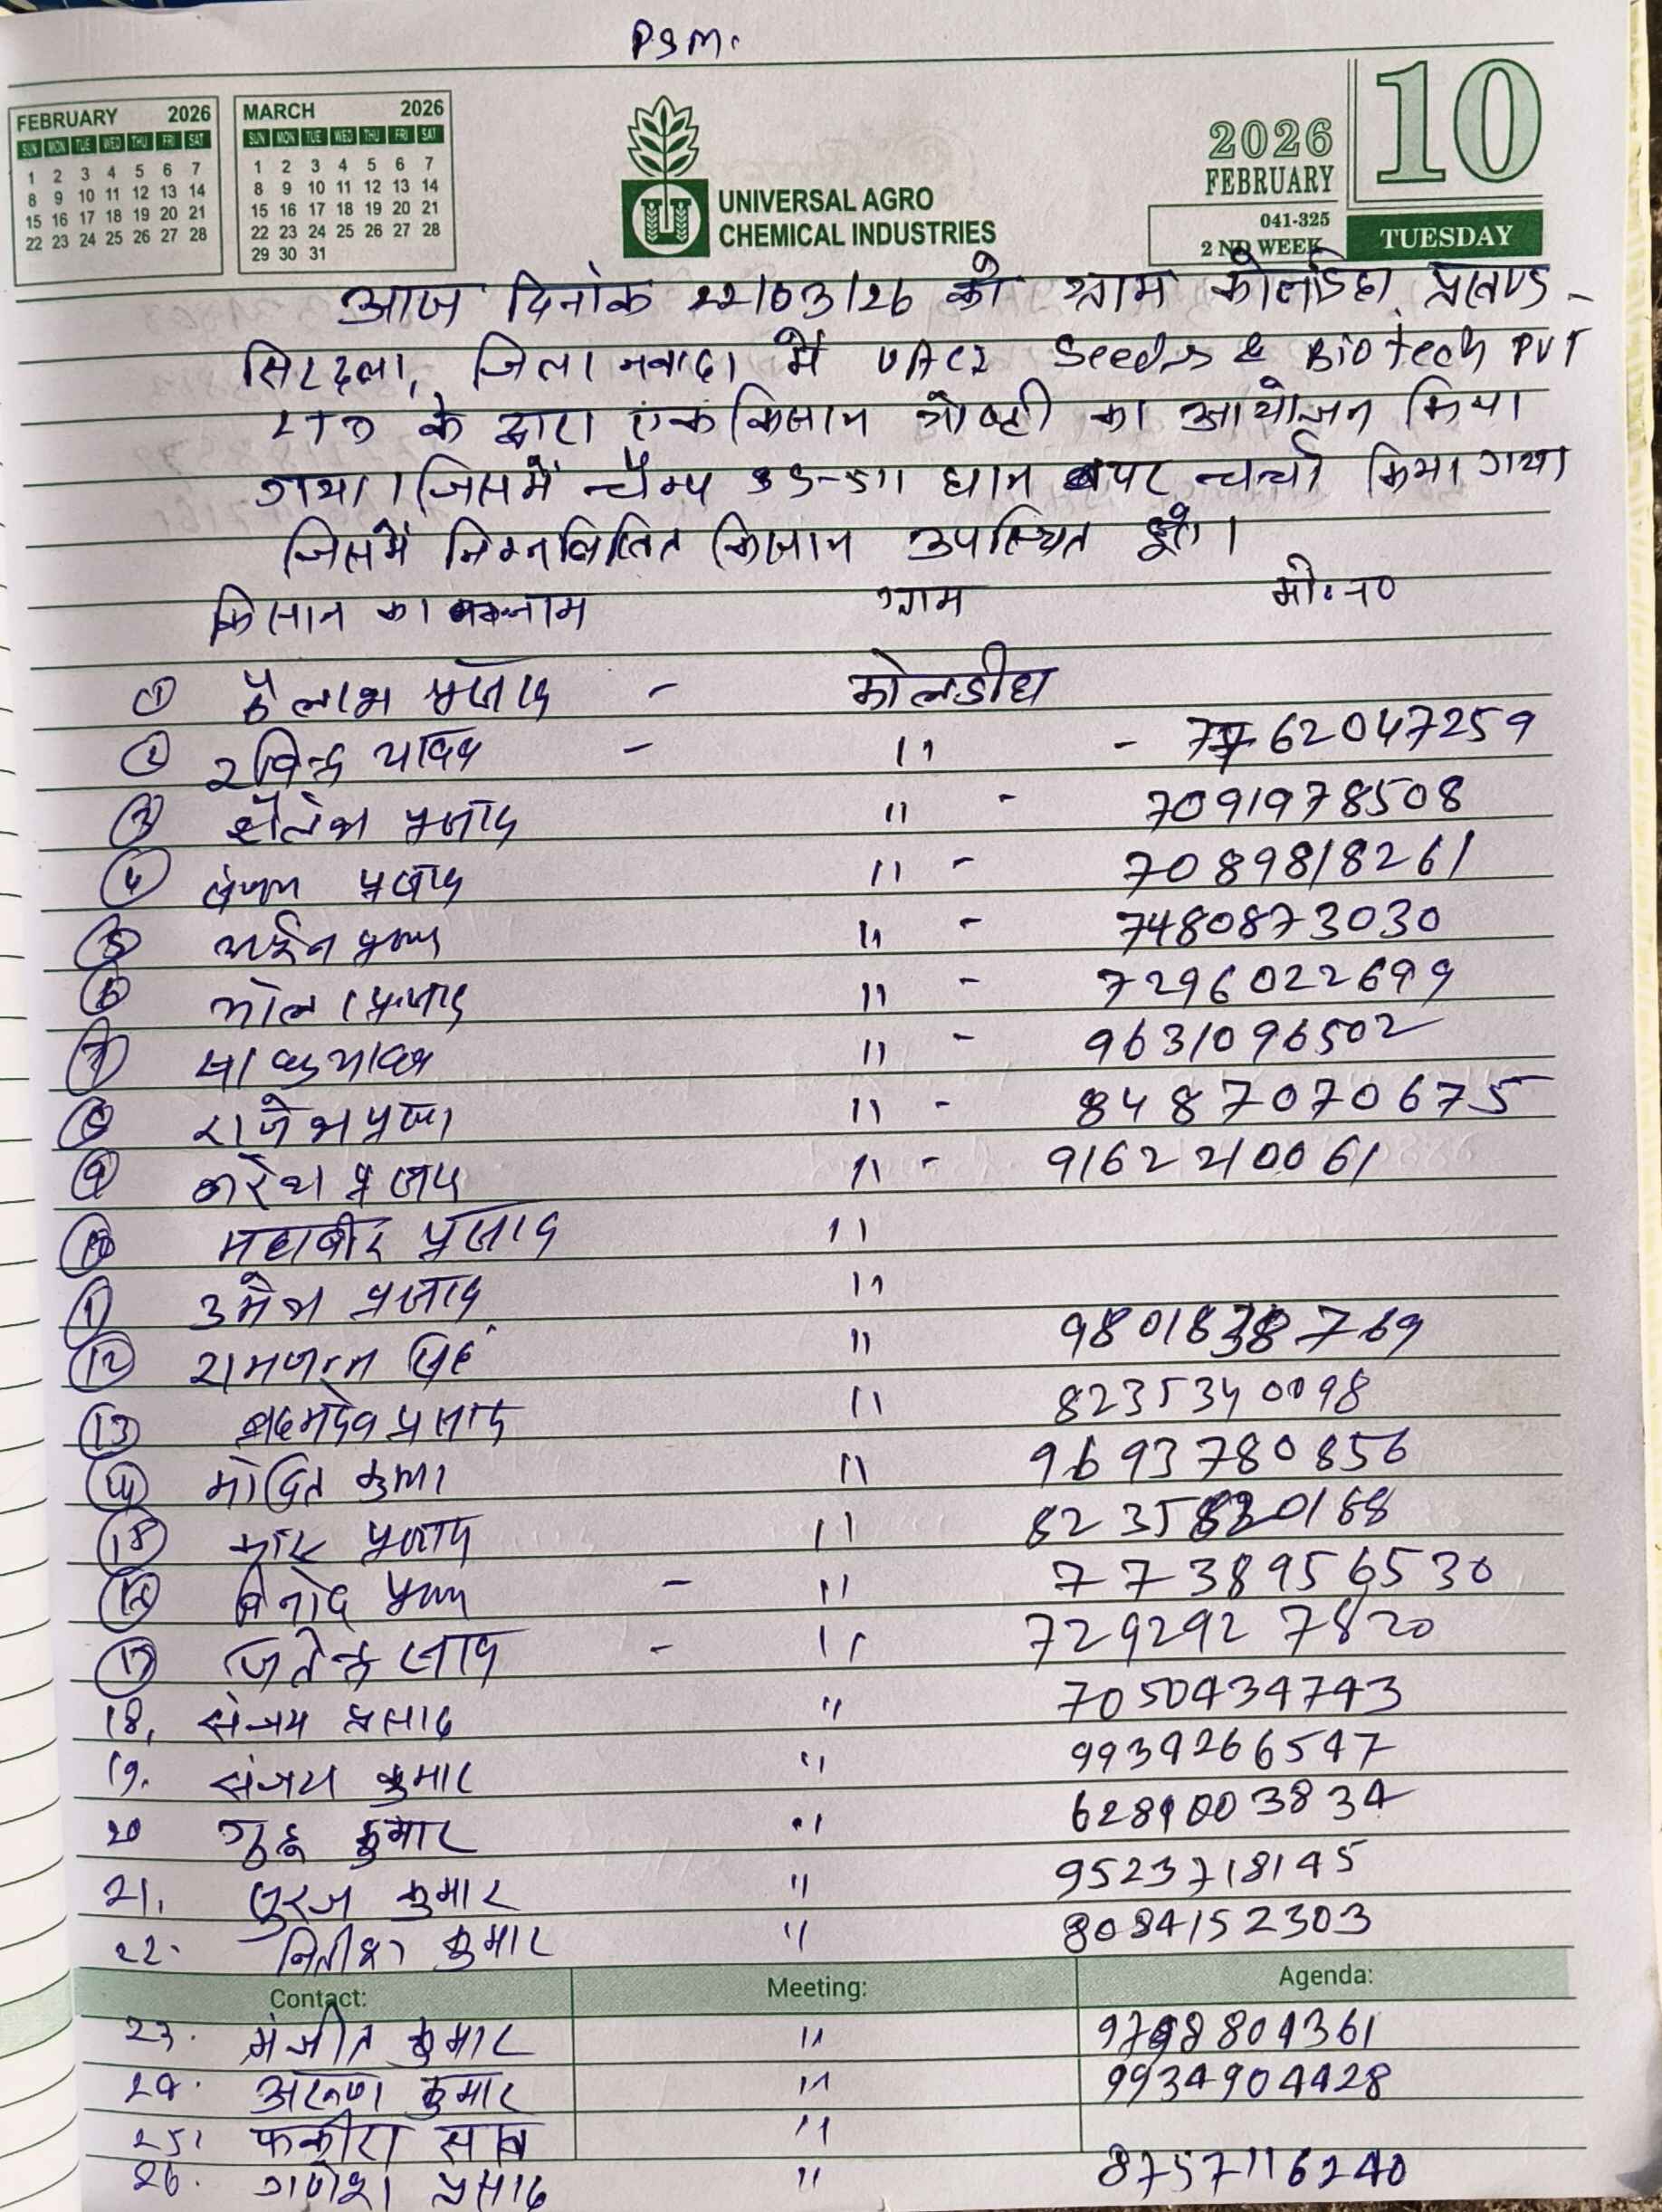 PSM.
FEBRUARY 2026
SUN MON TUE WED THU FRI SAT
1 2 3 4 5 6 7
8 9 10 11 12 13 14
15 16 17 18 19 20 21
22 23 24 25 26 27 28
MARCH 2026
SUN MON TUE WED THU FRI SAT
1 2 3 4 5 6 7
8 9 10 11 12 13 14
15 16 17 18 19 20 21
22 23 24 25 26 27 28
29 30 31
UNIVERSAL AGRO
CHEMICAL INDUSTRIES
2026
FEBRUARY
041-325
2 ND WEEK
10
TUESDAY
आज दिनांक 22/03/26 को ग्राम कोलडिहा, प्रखण्ड -
सिरदला, जिला नवादा में UACI Seeds & Biotech PVT
LTD के द्वारा एक किसान गोष्ठी का आयोजन किया
गया। जिसमें चैम्प धान पर चर्चा किया गया
जिसमें निम्नलिखित किसान उपस्थित हुए।
किसान का नाम ग्राम मो० न०
① कैलाश प्रसाद - कोलडीहा
② रविन्द्र यादव - " - 7762047259
③ शैलेश प्रसाद " - 7091978508
④ प्रसाद " - 7089818261
⑤ " - 7480873030
⑥ प्रसाद " - 7296022699
⑦ यादव " - 9631096502
⑧ राजेश " - 8487070675
⑨ नरेश प्रसाद " - 9162210061
⑩ महावीर प्रसाद "
⑪ उमेश प्रसाद "
⑫ सिंह "
⑬ ब्रह्मदेव प्रसाद " 8235340098
⑭ " 9693780856
⑮ प्रसाद "
⑯ विनोद - " 7738956530
⑰ जितेन्द्र - " 7292927820
18. संजय प्रसाद " 7050434743
19. संजय कुमार " 9939266547
20 गुड्डू कुमार "
21. सुरज कुमार " 9523718145
22. नितीश कुमार " 8084152303
Contact: Meeting: Agenda:
23. मंजीत कुमार "
24. अरूण कुमार " 9934904428
25. फकीरा साव "
26. गणेश प्रसाद " 8757116240